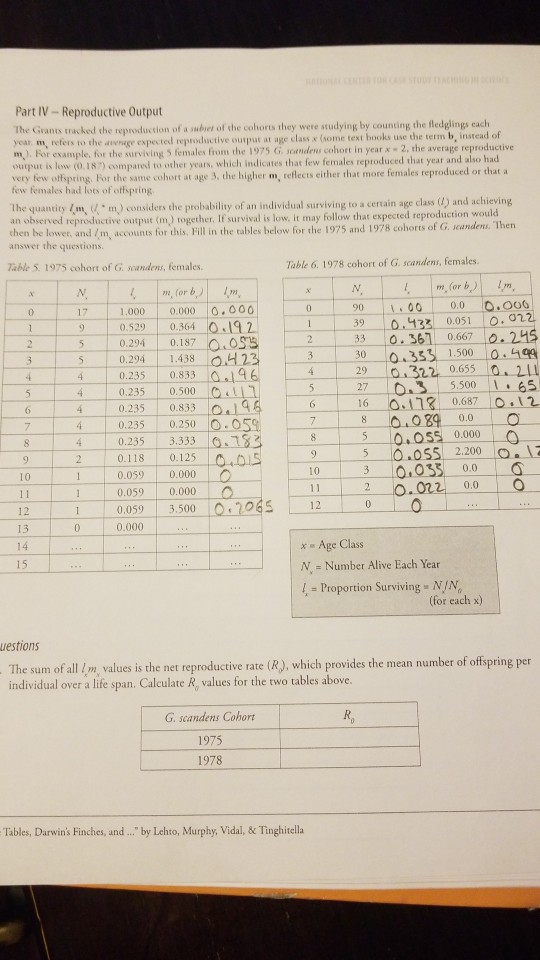 NATIONAL CENTER FOR CASE STUDY TEACHING IN SCIENCE
Part IV – Reproductive Output
The Grants tracked the reproduction of a subset of the cohorts they were studying by counting the fledglings each
year. mx refers to the average expected reproductive output at age class x (some text books use the term bx instead of
mx). For example, for the surviving 5 females from the 1975 G. scandens cohort in year x = 2, the average reproductive
output is low (0.187) compared to other years, which indicates that few females reproduced that year and also had
very few offspring. For the same cohort at age 3, the higher mx reflects either that more females reproduced or that a
few females had lots of offspring.
The quantity lxmx (lx * mx) considers the probability of an individual surviving to a certain age class (lx) and achieving
an observed reproductive output (mx) together. If survival is low, it may follow that expected reproduction would
then be lower, and lxmx accounts for this. Fill in the tables below for the 1975 and 1978 cohorts of G. scandens. Then
answer the questions.
Table 5. 1975 cohort of G. scandens, females.
x Nx lx mx (or bx) lxmx
0 17 1.000 0.000 0.000
1 9 0.529 0.364 0.192
2 5 0.294 0.187 0.055
3 5 0.294 1.438 0.423
4 4 0.235 0.833 0.196
5 4 0.235 0.500 0.117
6 4 0.235 0.833 0.196
7 4 0.235 0.250 0.059
8 4 0.235 3.333 0.783
9 2 0.118 0.125 0.015
10 1 0.059 0.000 0
11 1 0.059 0.000 0
12 1 0.059 3.500 0.2065
13 0 0.000 ... ...
14 ... ... ... ...
15 ... ... ... ...
Table 6. 1978 cohort of G. scandens, females.
x Nx lx mx (or bx) lxmx
0 90 1.00 0.0 0.000
1 39 0.433 0.051 0.022
2 33 0.367 0.667 0.245
3 30 0.333 1.500 0.499
4 29 0.322 0.655 0.211
5 27 0.3 5.500 1.65
6 16 0.178 0.687 0.12
7 8 0.089 0.0 0
8 5 0.055 0.000 0
9 5 0.055 2.200 0.12
10 3 0.033 0.0 0
11 2 0.022 0.0 0
12 0 0 ... ...
x = Age Class
Nx = Number Alive Each Year
lx = Proportion Surviving = Nx/N0
(for each x)
uestions
The sum of all lxmx values is the net reproductive rate (R0), which provides the mean number of offspring per
individual over a life span. Calculate R0 values for the two tables above.
G. scandens Cohort R0
1975
1978
Tables, Darwin's Finches, and ..." by Lehto, Murphy, Vidal, & Tinghitella